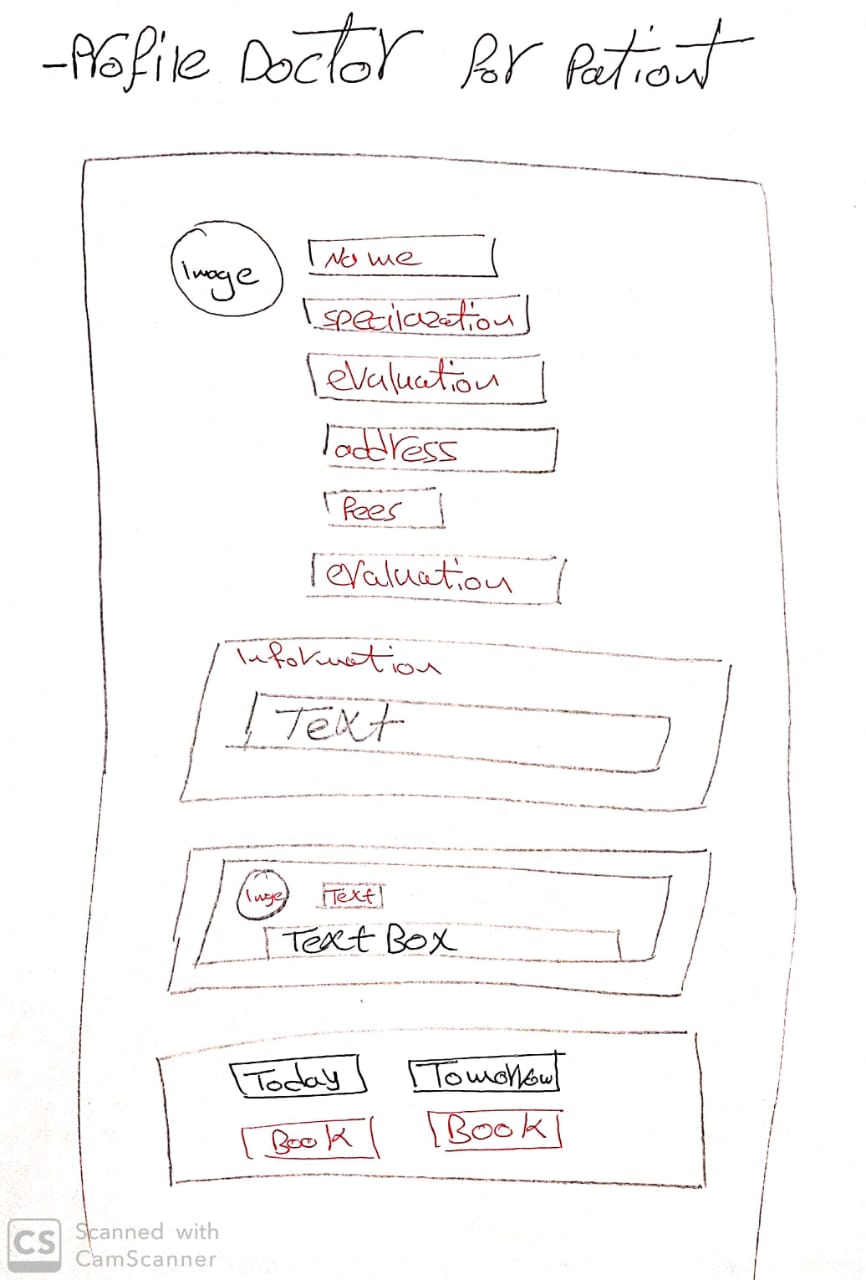 -Profile Doctor for Pationt
Image
Name
specilazation
evaluation
address
fees
evaluation
Information
Text
Image
Text
Text Box
Today Tomorrow
Book Book
CS Scanned with
CamScanner